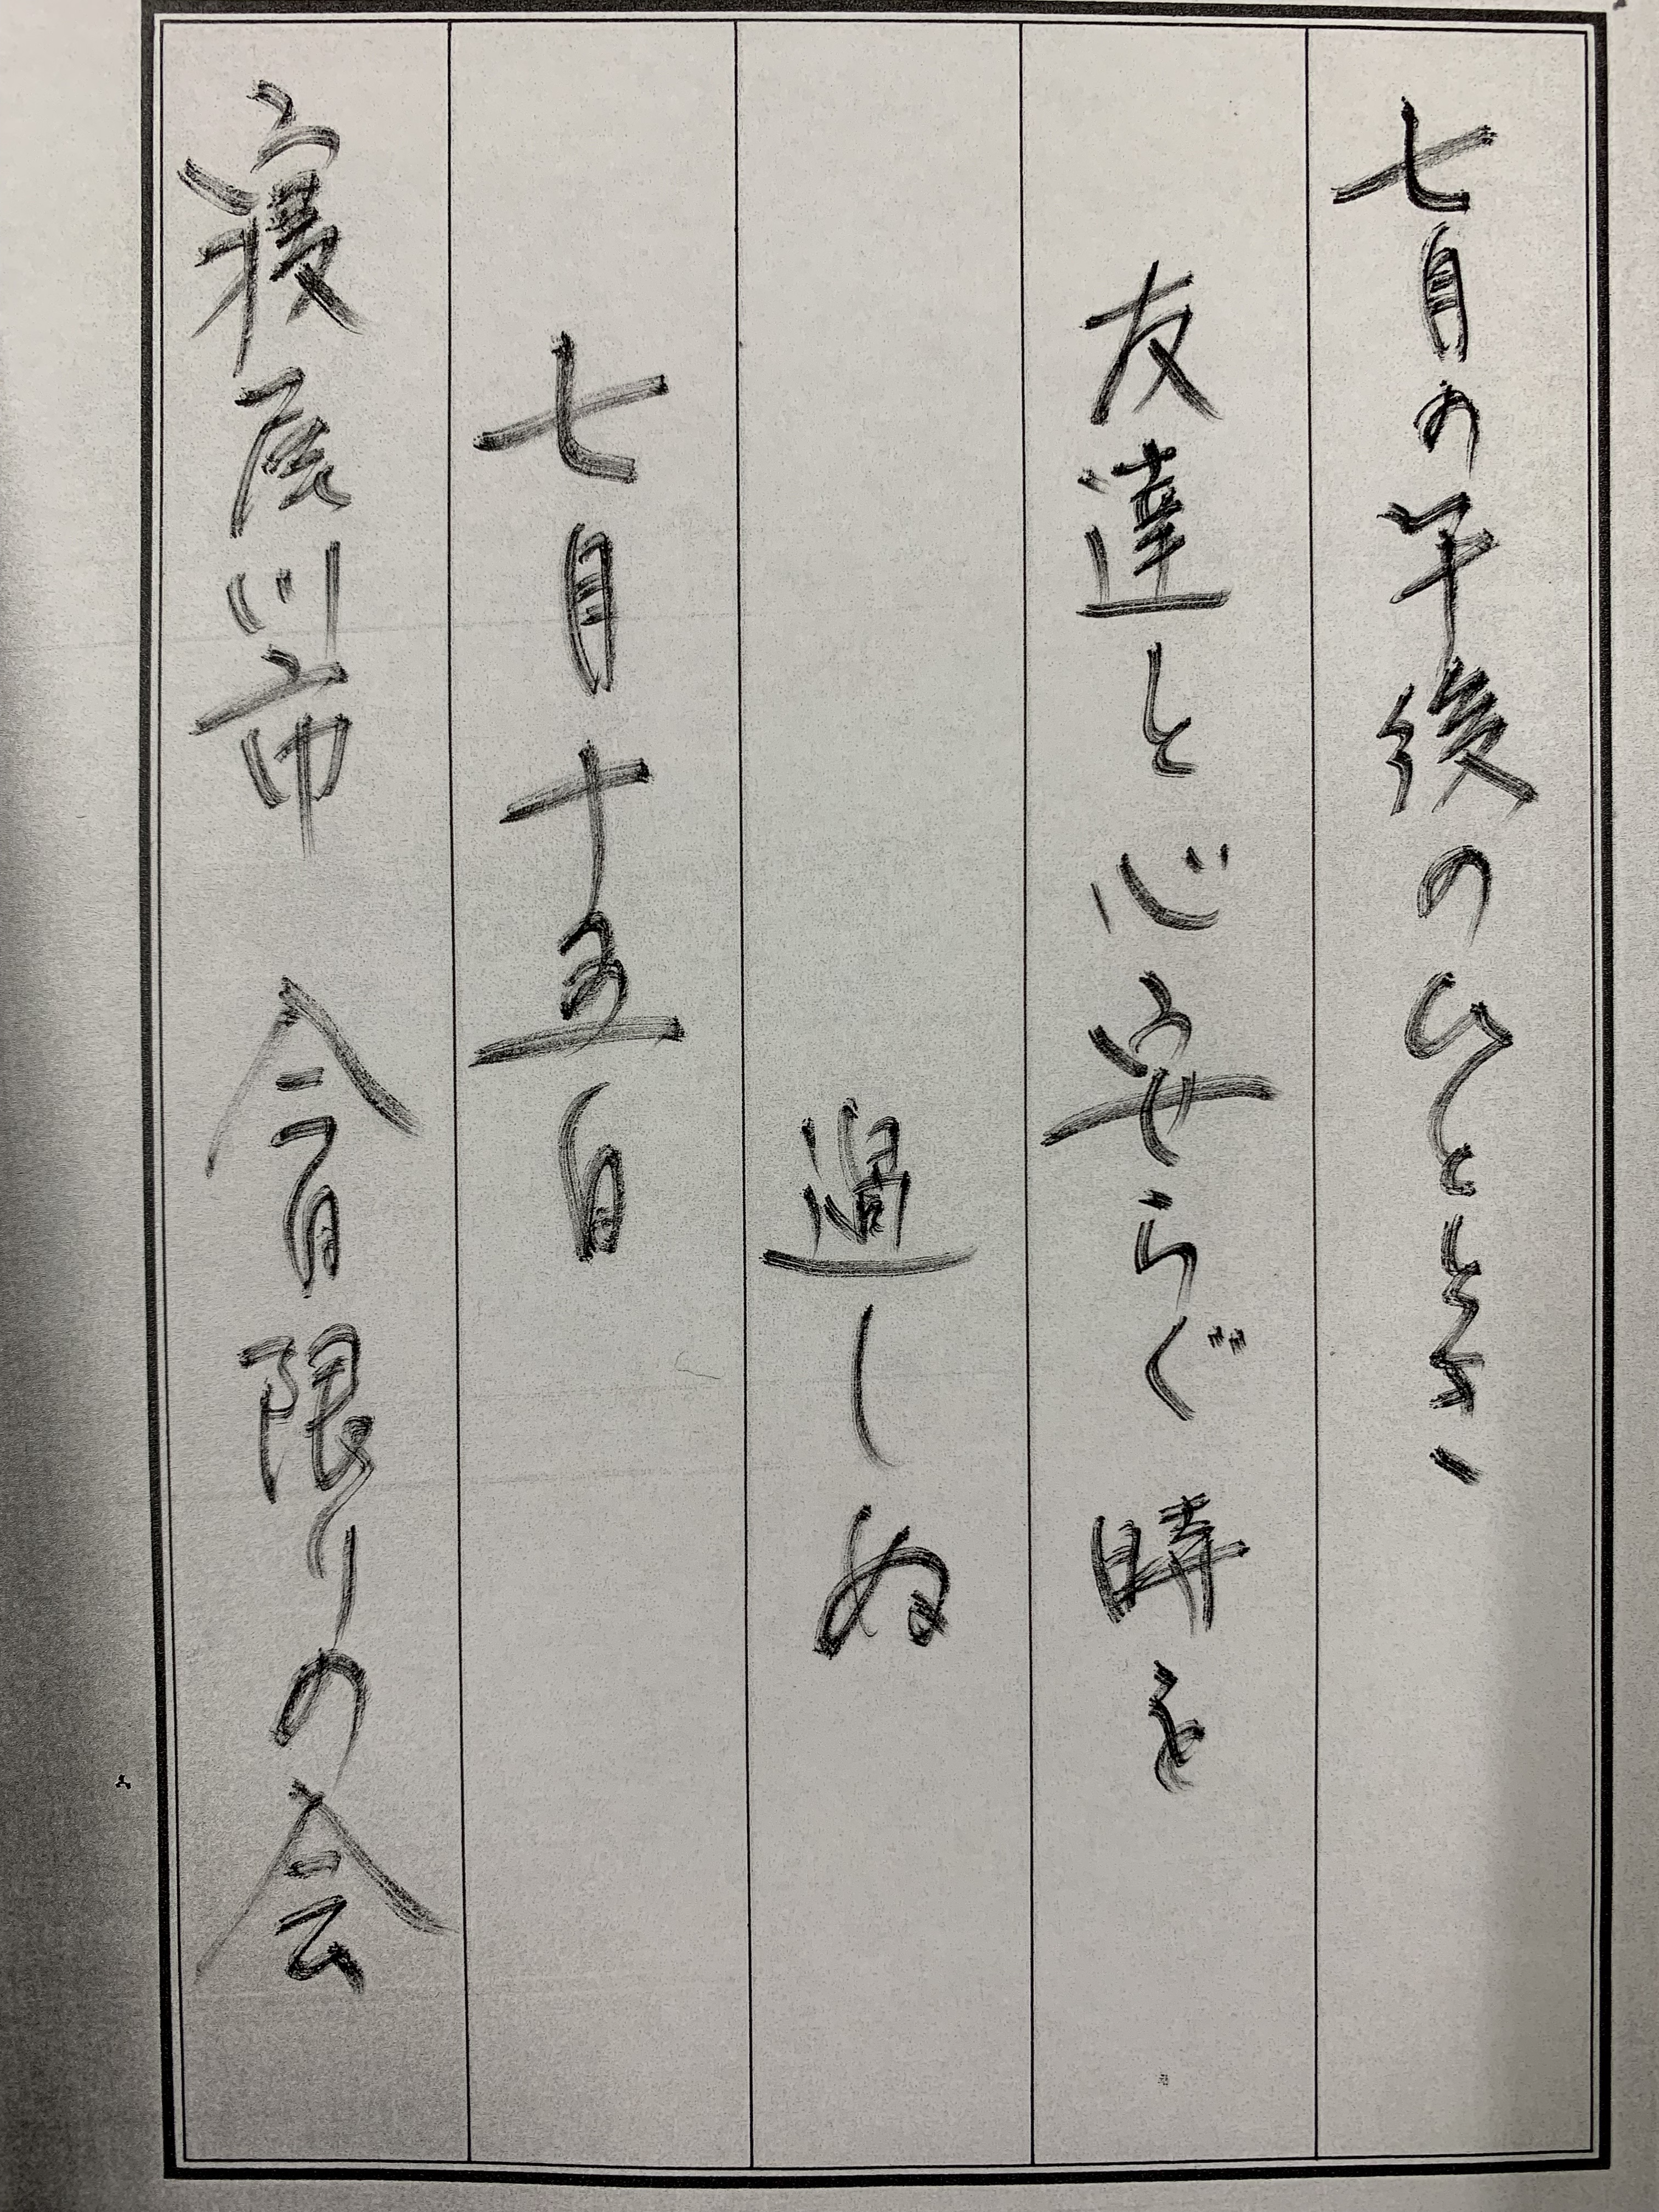 七月の午後のひととき、
友達と心安らぐ時を
過しぬ
七月十五日
寝屋川市 今日限りの会